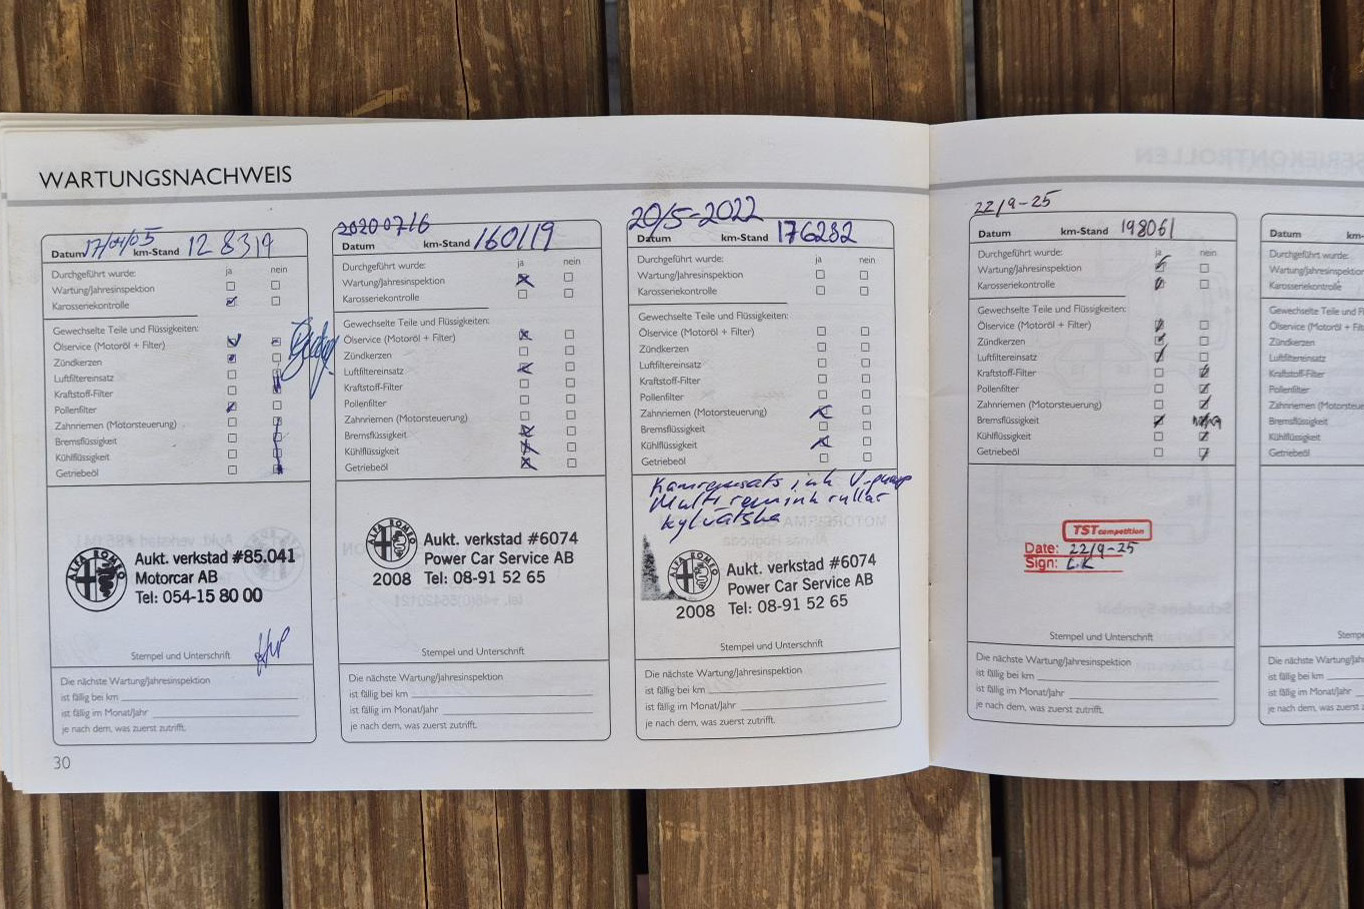 WARTUNGSNACHWEIS
17/04/05 128319
Datum km-Stand
Durchgeführt wurde: ja nein
Wartung/Jahresinspektion
Karosseriekontrolle
Gewechselte Teile und Flüssigkeiten:
Ölservice (Motoröl + Filter)
Zündkerzen
Luftfiltereinsatz
Kraftstoff-Filter
Pollenfilter
Zahnriemen (Motorsteuerung)
Bremsflüssigkeit
Kühlflüssigkeit
Getriebeöl
ALFA ROMEO
Aukt. verkstad #85.041
Motorcar AB
Tel: 054-15 80 00
Stempel und Unterschrift
Die nächste Wartung/Jahresinspektion
ist fällig bei km
ist fällig im Monat/Jahr
je nach dem, was zuerst zutrifft.
30
20200716
Datum km-Stand 160119
Durchgeführt wurde: ja nein
Wartung/Jahresinspektion
Karosseriekontrolle
Gewechselte Teile und Flüssigkeiten:
Ölservice (Motoröl + Filter)
Zündkerzen
Luftfiltereinsatz
Kraftstoff-Filter
Pollenfilter
Zahnriemen (Motorsteuerung)
Bremsflüssigkeit
Kühlflüssigkeit
Getriebeöl
ALFA ROMEO
2008
Aukt. verkstad #6074
Power Car Service AB
Tel: 08-91 52 65
Stempel und Unterschrift
Die nächste Wartung/Jahresinspektion
ist fällig bei km
ist fällig im Monat/Jahr
je nach dem, was zuerst zutrifft.
20/5-2022
Datum km-Stand 176282
Durchgeführt wurde: ja nein
Wartung/Jahresinspektion
Karosseriekontrolle
Gewechselte Teile und Flüssigkeiten:
Ölservice (Motoröl + Filter)
Zündkerzen
Luftfiltereinsatz
Kraftstoff-Filter
Pollenfilter
Zahnriemen (Motorsteuerung)
Bremsflüssigkeit
Kühlflüssigkeit
Getriebeöl
Kamremsats ink V-pump
Multirem ink rullar
kylvätska
ALFA ROMEO
2008
Aukt. verkstad #6074
Power Car Service AB
Tel: 08-91 52 65
Stempel und Unterschrift
Die nächste Wartung/Jahresinspektion
ist fällig bei km
ist fällig im Monat/Jahr
je nach dem, was zuerst zutrifft.
22/9-25
Datum km-Stand 198061
Durchgeführt wurde: ja nein
Wartung/Jahresinspektion
Karosseriekontrolle
Gewechselte Teile und Flüssigkeiten:
Ölservice (Motoröl + Filter)
Zündkerzen
Luftfiltereinsatz
Kraftstoff-Filter
Pollenfilter
Zahnriemen (Motorsteuerung)
Bremsflüssigkeit
Kühlflüssigkeit
Getriebeöl
TST competition
Date: 22/9-25
Sign: L.K
Stempel und Unterschrift
Die nächste Wartung/Jahresinspektion
ist fällig bei km
ist fällig im Monat/Jahr
je nach dem, was zuerst zutrifft.
Datum km-
Durchgeführt wurde:
Wartung/Jahresinspektion
Karosseriekontrolle
Gewechselte Teile und F
Ölservice (Motoröl + Filt
Zündkerzen
Luftfiltereinsatz
Kraftstoff-Filter
Pollenfilter
Zahnriemen (Motorsteue
Bremsflüssigkeit
Kühlflüssigkeit
Getriebeöl
Stemp
Die nächste Wartung/Jah
ist fällig bei km
ist fällig im Monat/Jahr
je nach dem, was zuerst z